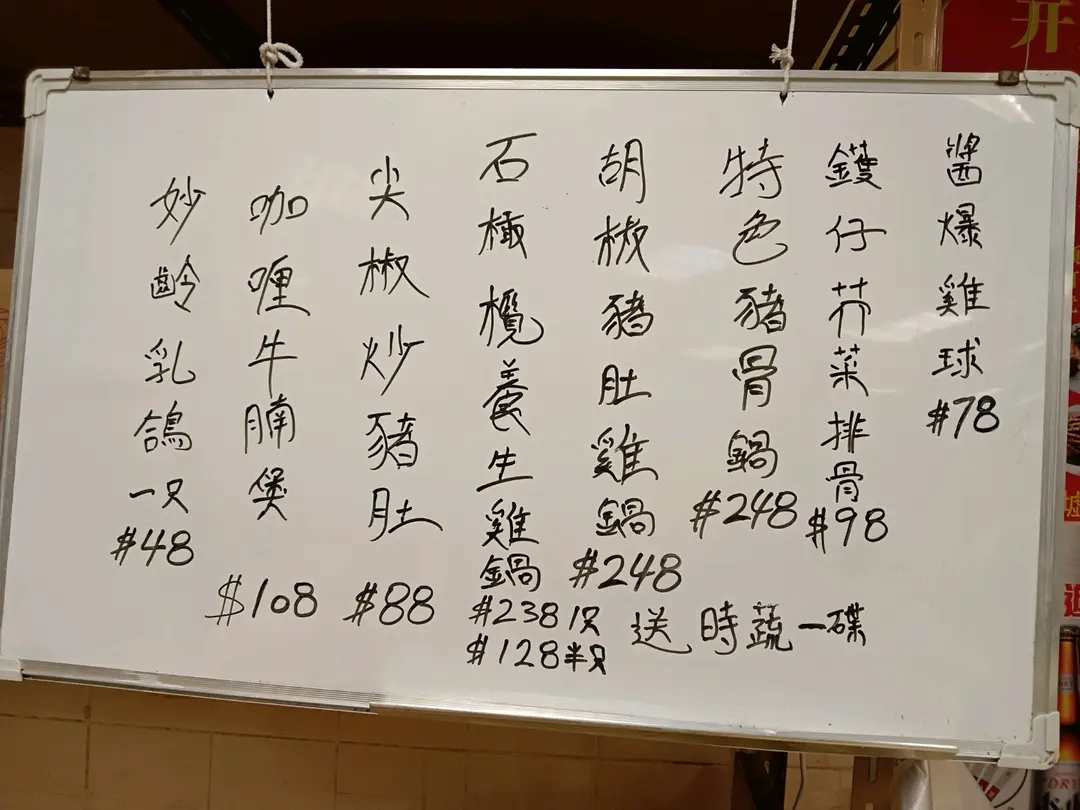 醬爆雞球
$78
鑊仔芥菜排骨
$98
特色豬骨鍋
$248
胡椒豬肚雞鍋
$248
送時蔬一碟
石橄欖養生雞鍋
$238 1只
$128半只
尖椒炒豬肚
$88
咖喱牛腩煲
$108
妙齡乳鴿一只
$48
开
DRY